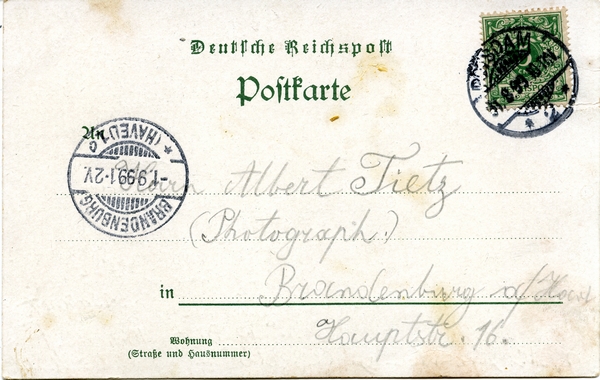 Deutsche Reichspost
Postkarte
An
Herrn Albert Tietz
(Photograph.)
in Brandenburg a/Hav
Hauptstr. 16.
Wohnung
(Straße und Hausnummer)
BRANDENBURG (HAVEL)
-1.9.99.1-2V.
c
POTSDAM